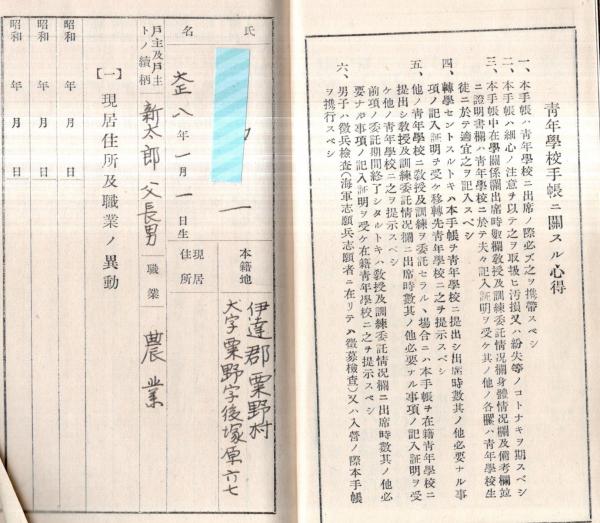 青年學校手帳ニ關スル心得
一、本手帳ハ青年學校ニ出席ノ際必ズ之ヲ携帶スベシ
二、本手帳ハ細心ノ注意ヲ以テ之ヲ取扱ヒ汚損又ハ紛失等ノコトナキヲ期スベシ
三、本手帳中在學關係欄出席時數欄教授及訓練委託情况欄身體情况欄及備考欄竝
ニ證明書欄ハ青年學校ニ於テ夫々記入證明ヲ受ケ其ノ他ノ各欄ハ青年學校生
徒ニ於テ適宜之ヲ記入スベシ
四、轉學セントスルトキハ本手帳ヲ青年學校ニ提出シ出席時數其ノ他必要ナル事
項ノ記入證明ヲ受ケ移轉先青年學校ニ之ヲ提示スベシ
五、他ノ青年學校ニ教授及訓練ヲ委託セラルヽ場合ニハ本手帳ヲ在籍青年學校ニ
提出シ教授及訓練委託情况欄ニ出席時數其ノ他必要ナル事項ノ記入證明ヲ受
ケ他ノ青年學校ニ之ヲ提示スベシ
前項ノ委託期間終了シタルトキハ教授及訓練委託情况欄ニ出席時數其ノ他必
要ナル事項ノ記入證明ヲ受ケ在籍青年學校ニ之ヲ提示スベシ
六、男子ハ徴兵檢査(海軍志願兵志願者ニ在リテハ徴募檢査)又ハ入營ノ際本手帳
ヲ携行スベシ
氏名
一
大正八年一月一日生
戸主及戸主トノ續柄
新太郎 父長男
本籍地
伊達郡粟野村
大字粟野字後塚原六七
現居住所
職業
農業
【一】現居住所及職業ノ異動
昭和 年 月 日
昭和 年 月 日
昭和 年 月 日